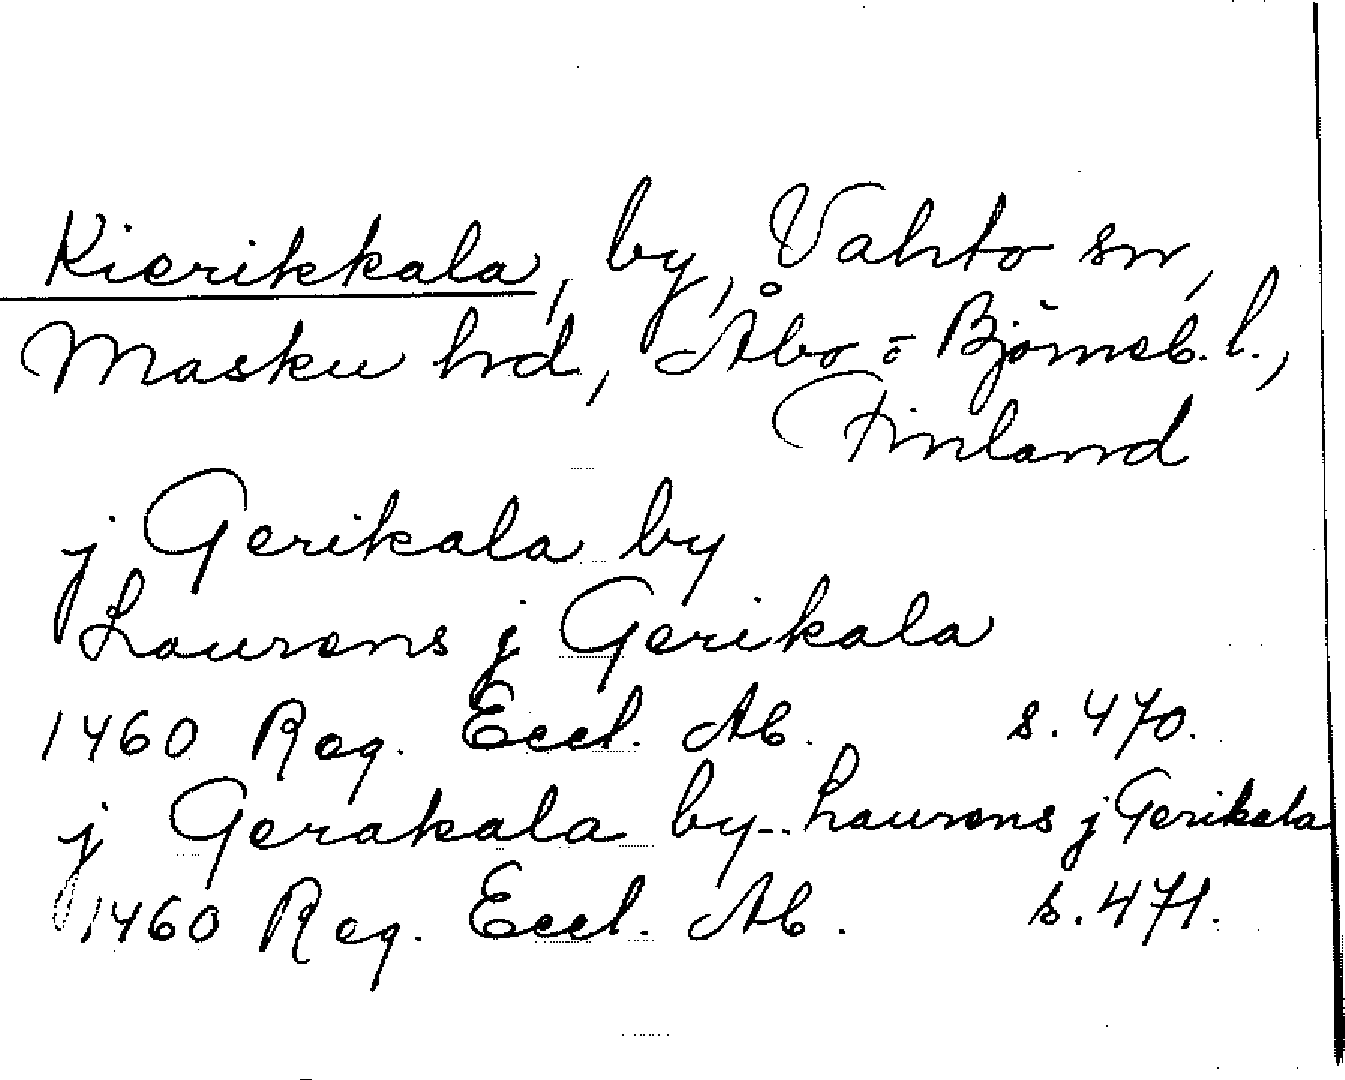 Kierikkala, by, Vahto sn,
Masku hrd, Åbo o Björneb. l.,
Finland
j Gerikala by
Laurens j Gerikala
1460 Reg. Eccl. Ab. s. 470.
j Gerakala by Laurens j Gerikala
1460 Reg. Eccl. Ab. s. 471.